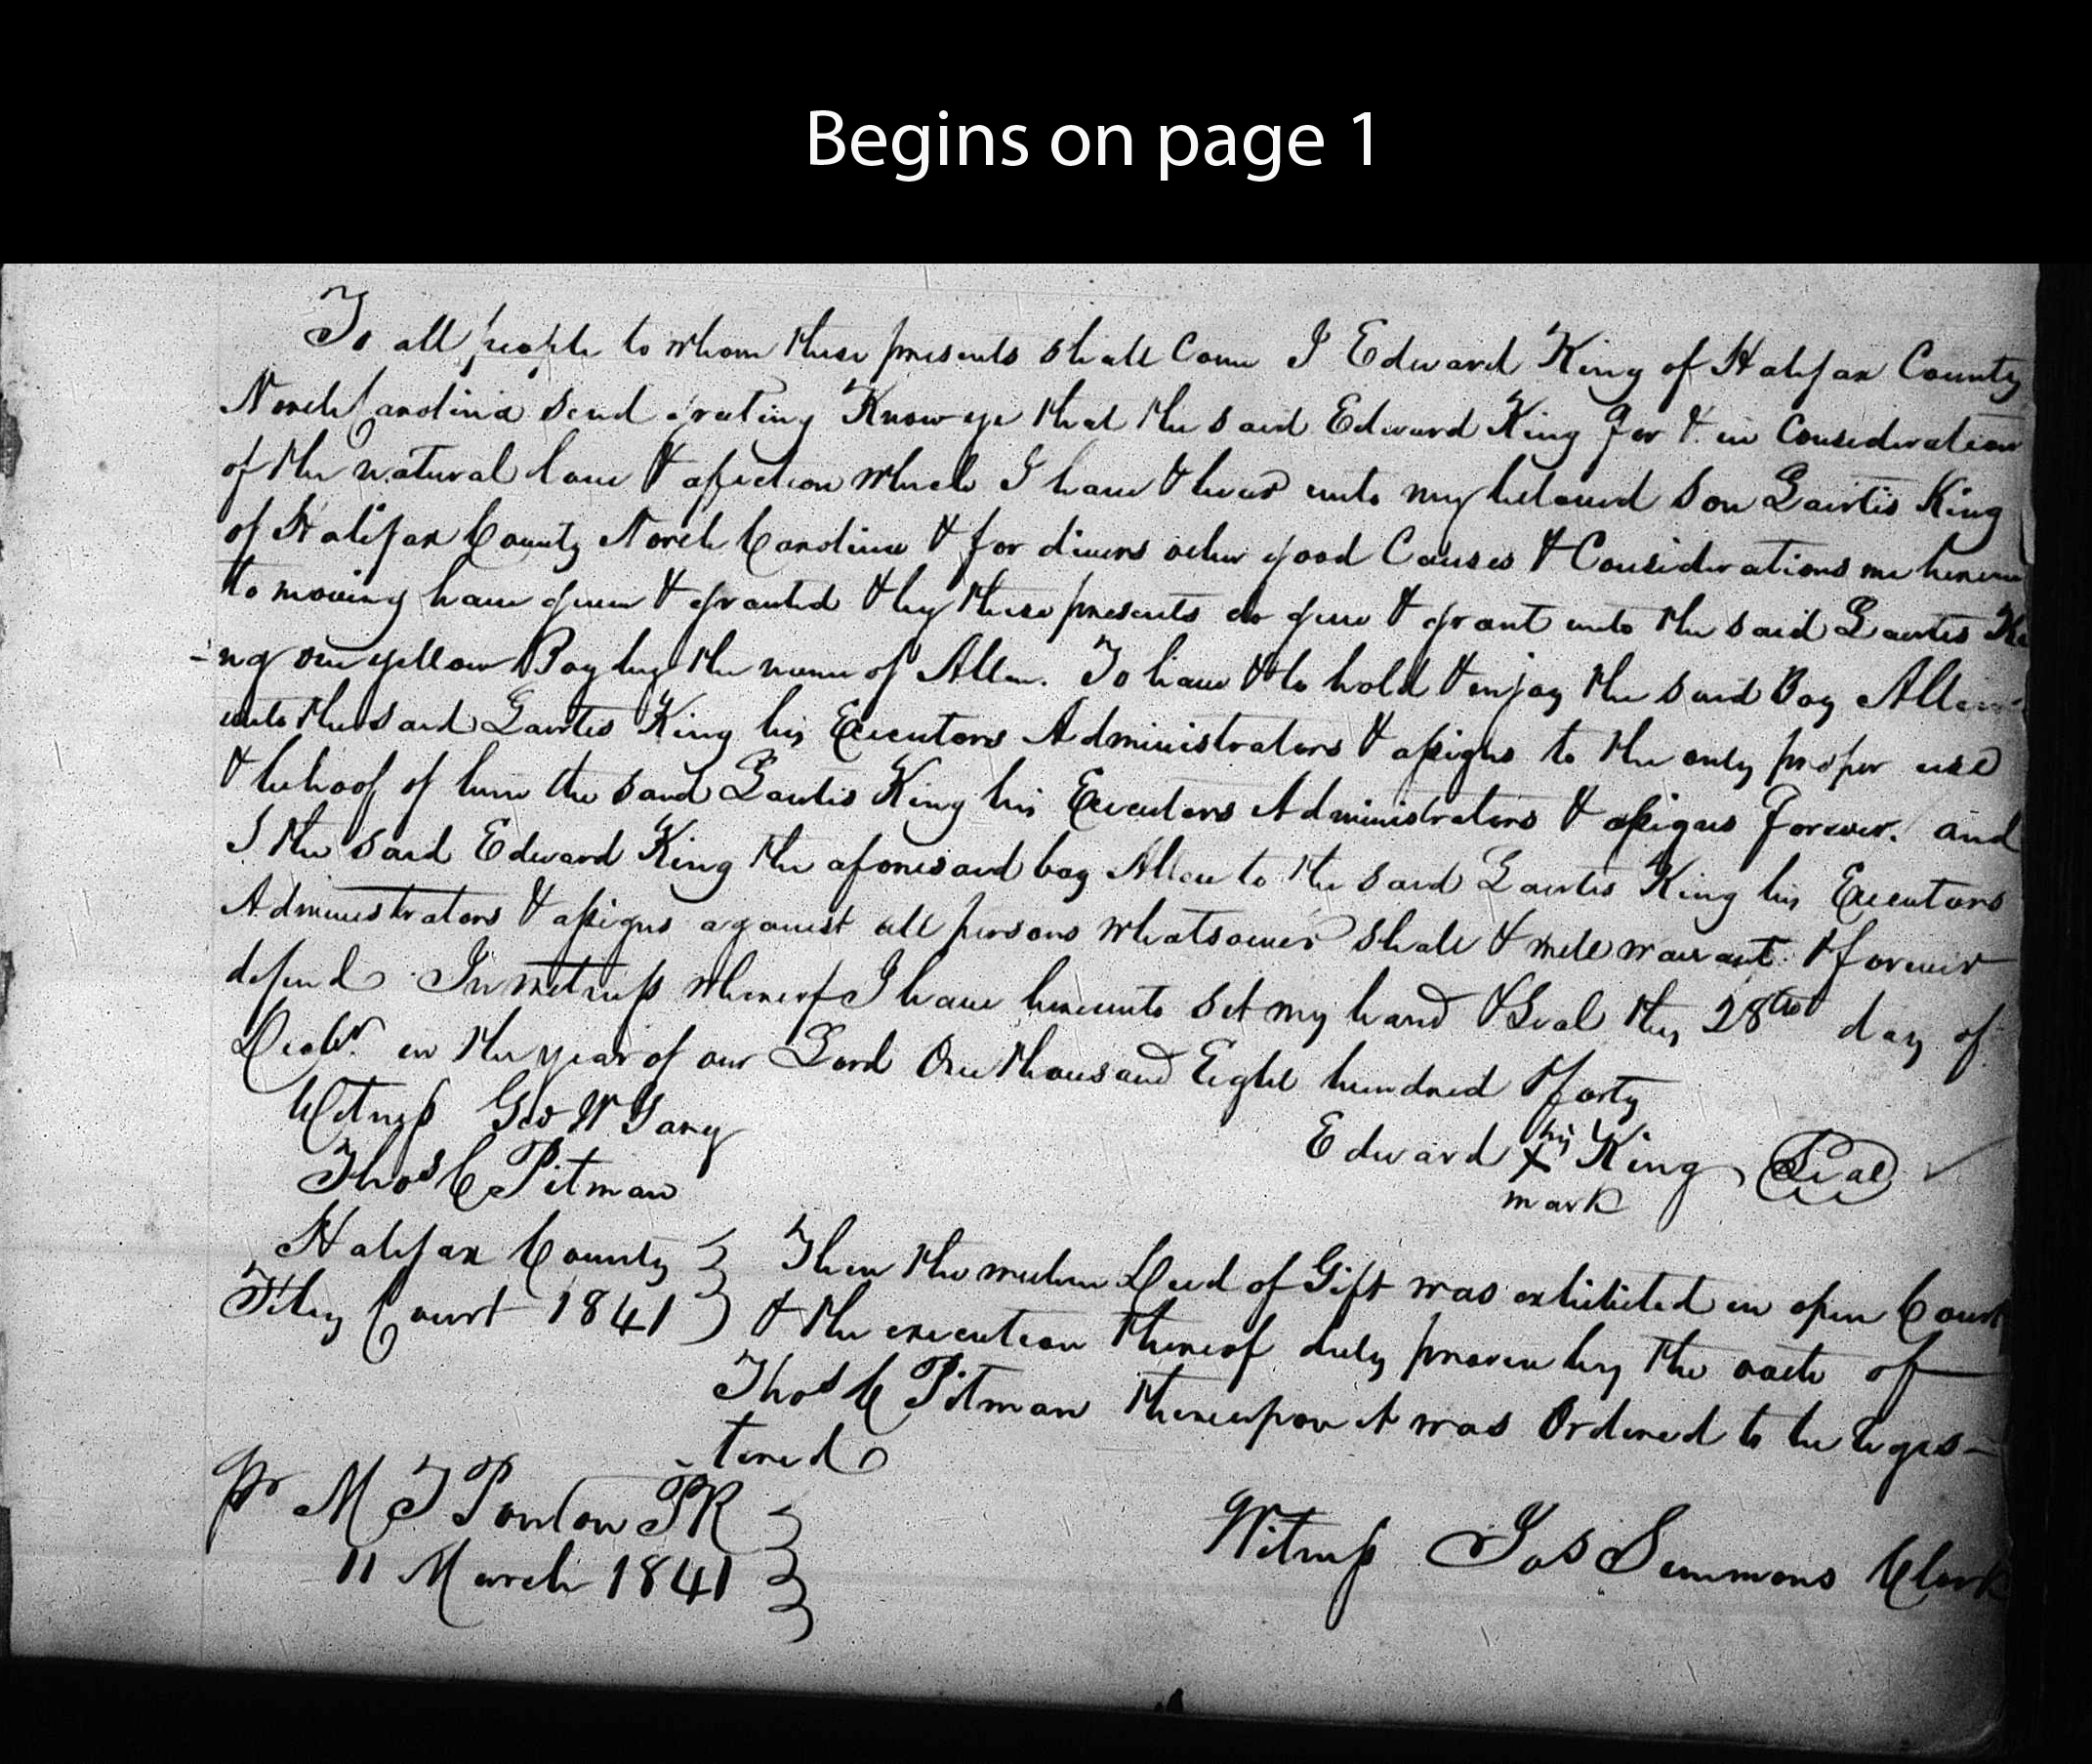 Begins on page 1
To all people to whom these presents shall Come I Edward King of Halifax County
North Carolina send greeting Know ye that the said Edward King for & in Consideration
of the natural love & afection which I have & bear unto my beloved son King
of Halifax County North Carolina & for divers other good Causes & Considerations me hereun
to moving have given & granted & by these presents do give & grant unto the said Ki
-ng one yellow Boy by the name of Allen. To have & to hold & enjoy the said Boy Allen
unto the said King his Executors Administrators & assigns to the only proper use
& behoof of him the said King his Executors Administrators & assigns forever. and
I the said Edward King the aforesaid boy Allen to the said King his Executors
Administrators & assigns against all persons whatsoever shall & will warrant & forever
defend In witness whereof I have hereunto set my hand & Seal this 28th day of
Decbr. in the year of our Lord One thousand Eight hundred & forty
Witness Geo W Gary
Thos C Pitman
Edward his X mark King Seal
Halifax County } Then the within Deed of Gift was exhibited in open Court
Feby Court 1841 } & the execution thereof duly proven by the oath of
Thos C Pitman thereupon it was Ordered to be regis-
-tered
pr M T Ponton PR }
11 March 1841 }
Witness Jos Simmons Clerk